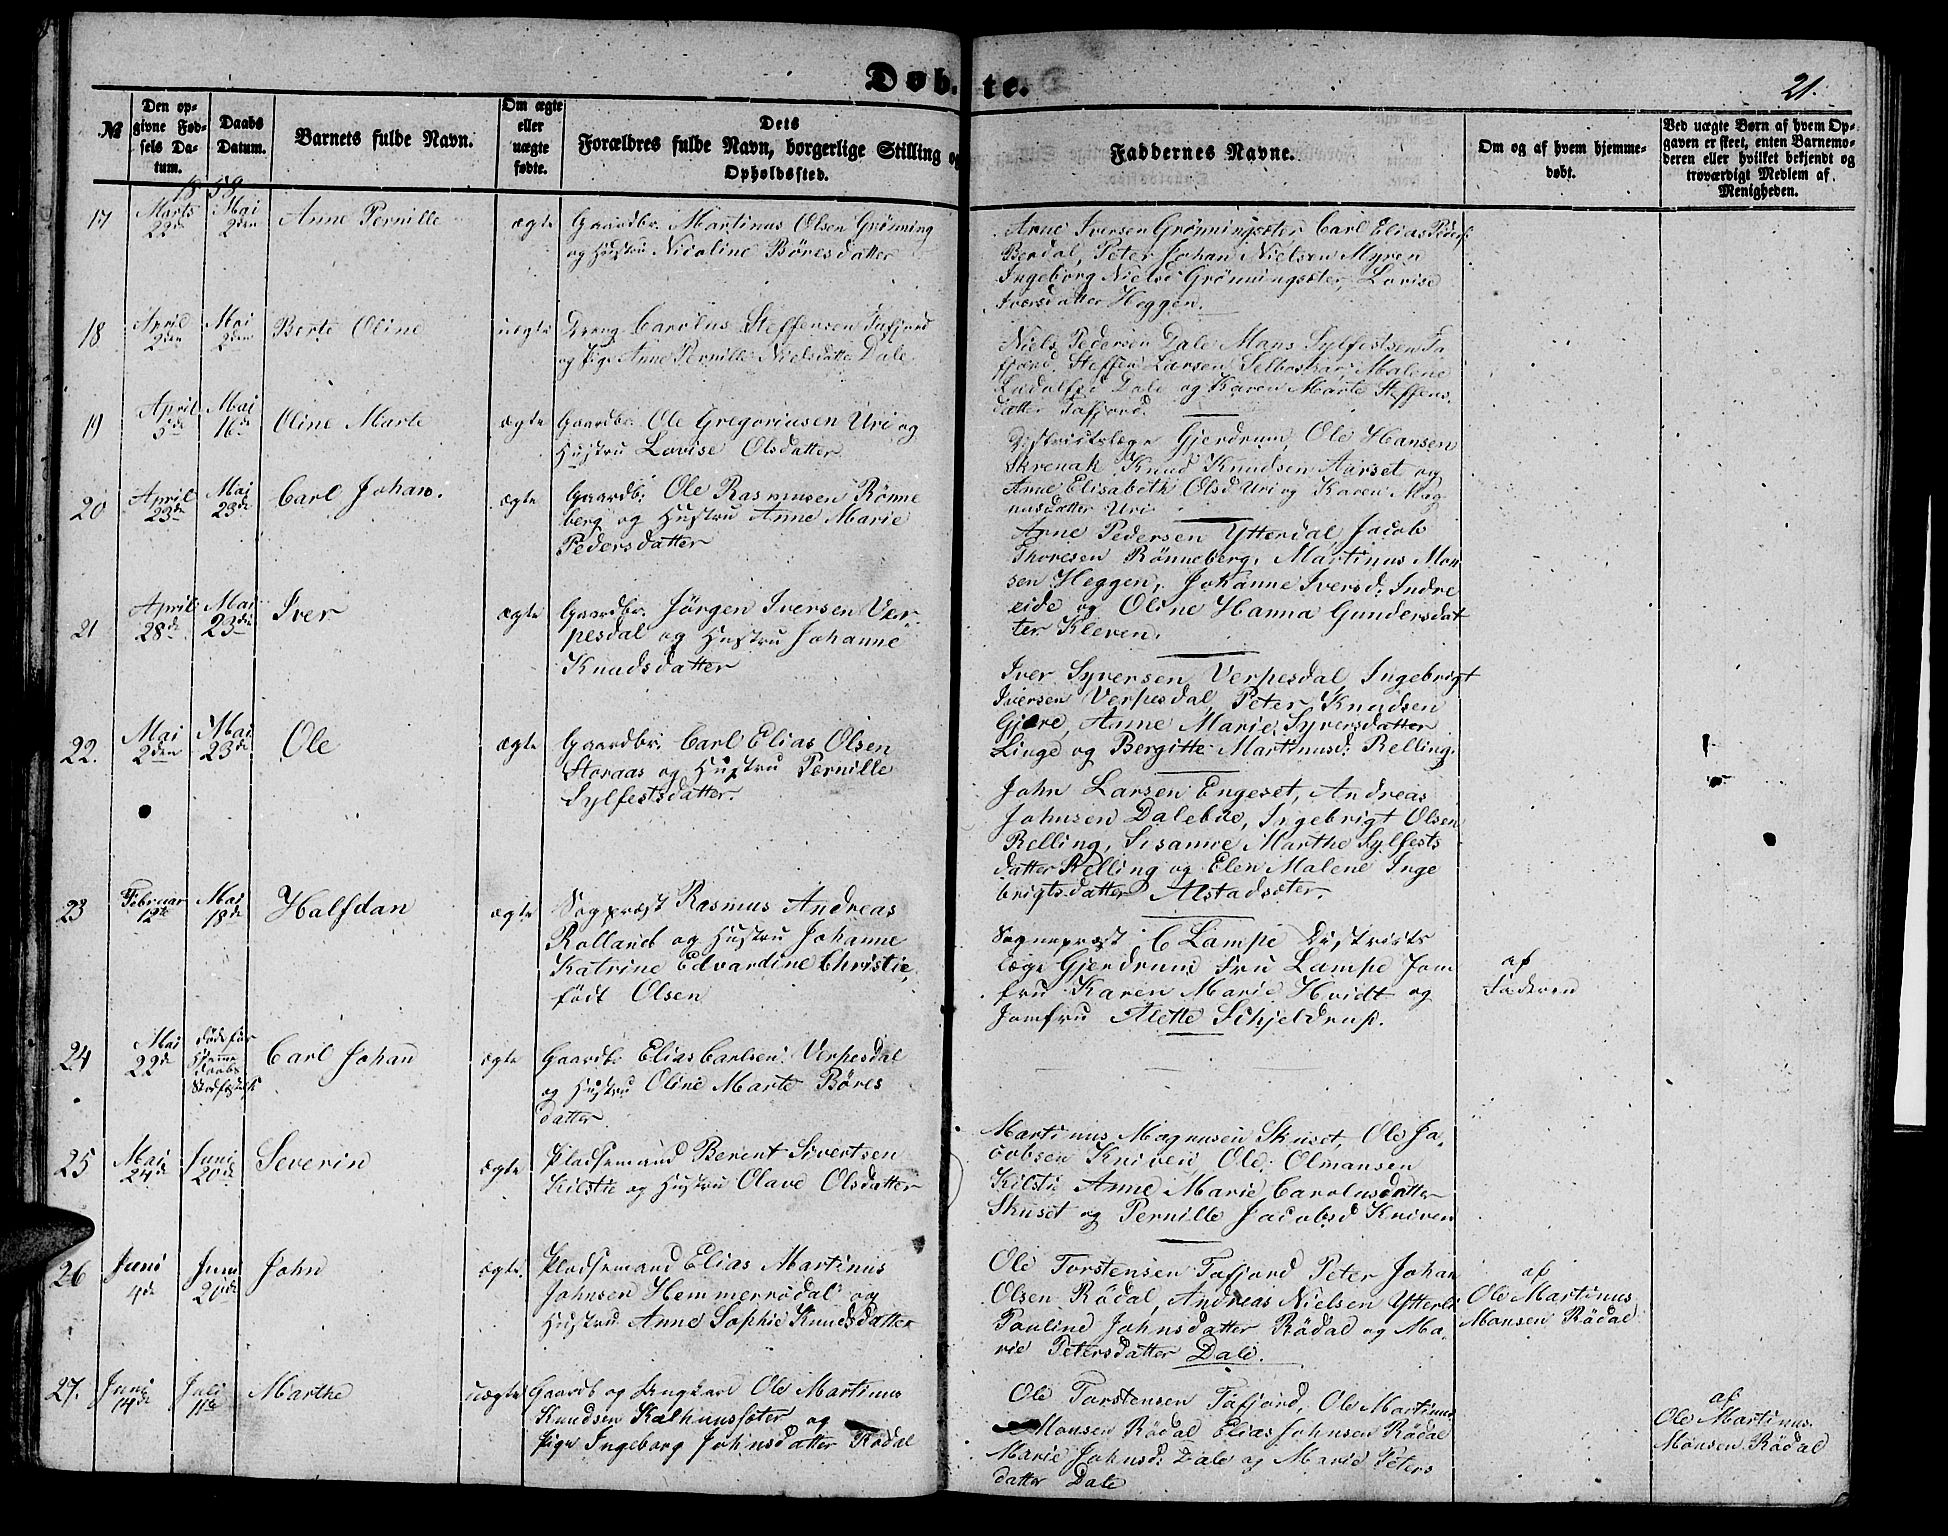 Døbte.
21.
№
Den op-
givne Fød-
sels Da-
tum.
Daabs
Datum.
Barnets fulde Navn.
Om ægte
eller
uægte
fødte.
Dets
Forældres fulde Navn, borgerlige Stilling og
Opholdssted.
Faddernes Navne.
Om og af hvem hjemme-
døbt.
Ved uægte Børn af hvem Op-
gaven er skeet, enten Barnemo-
deren eller hvilket bekjendt og
troværdigt Medlem af
Menigheden.
1858
17
Marts
22de
Mai
2den
Anne Pernille
ægte
Gaardbr. Martinus Olsen Grønning
og Hustru Nicoline Børesdatter
Arne Iversen Grønningsæter Carl Elias Peders
Berdal, Peter Johan Nielsen Myren
Ingeborg Nielsd Grønningsæter, Lovise
Iversdatter Heggen.
18
April
2den
Mai
2den
Berte Oline
uægte
Dreng Carolus Steffensen Tafjord
og Pige Anne Pernille Nielsdatter Dale
Niels Pedersen Dale Mons Sylfestsen Ta
fjord, Steffen Larsen Selboskar, Malene
Ladolfsd Dale og Karen Marte Steffens-
datter Tafjord.
19
April
5de
Mai
16de
Oline Marte
ægte
Gaardbr. Ole Gregoriusen Uri og
Hustru Lovise Olsdatter
Districtslæge Gjerdrum, Ole Hansen
Skrenak Knud Knudsen Aarset og
Anne Elisabeth Olsd Uri og Karen Mag
nusdatter Uri
20
April
23de
Mai
23de
Carl Johan.
ægte
Gaardb: Ole Rasmusen Rønne
berg og Hustru Anne Marie
Pedersdatter
Arne Pedersen Ytterdal Jacob
Thoresen Rønneberg, Martinus Mon
sen Heggen, Johanne Iversd: Indre
eide og Oline Hanna Gundersdat
ter Kleven.
21
April
28de
Mai
23de
Iver
ægte
Gaardbr. Jørgen Iversen Ver-
pesdal og Hustru Johanne
Knudsdatter
Iver Syversen Verpesdal Ingebrigt
Iversen Verpesdal, Peter Knudsen
Gjære, Anne Marie Syversdatter
Linge og Bergitte Martinusd: Relling.
22.
Mai
2den
Mai
23de
Ole
ægte
Gaardbr. Carl Elias Olsen
Storaas og Hustru Pernille
Sylfestsdatter.
John Larsen Engeset, Andreas
Johnsen Dalebøe, Ingebrigt Olsen
Relling, Sisanne Marthe Sylfests
datter Relling og Elen Malene Inge
brigtsdatter Alstadsæter.
23
Februar
12te
Mai
18de
Halfdan
ægte
Sogpræst Rasmus Andreas
Rolland og Hustru Johanne
Katrine Edvardine Christie,
født Olsen
Sognepræst C Lampe Districts
læge Gjerdrum Fru Lampe Jom
fru Karen Marie Hvidt og
Jomfru Alette Schjeldrup.
af
Faderen
24
Mai
22de
døde før
Hjemme
daabs
Carl Johan
ægte
Gaardb: Elias Carlsen Verpesdal
og Hustru Oline Marte Børes
datter
25
Mai
24de
Juni
20de
Severin
ægte
Pladsemand Berent Sivertsen
Kilstie og Hustru Olave Olsdatter
Martinus Magnusen Skuset, Ole Ja-
cobsen Kniven Ole Olmansen
Kilsti Anne Marie Carolusdatter
Skuset og Pernille Jacobsd Kniven
26
Juni
4de
Juni
20de
John
ægte.
Pladsemand Elias Martinus
Johnsen Hemmerrødal og
Hustru Anne Sophie Knudsdatter
Ole Torstensen Tafjord Peter Johan
Olsen Rødal, Andreas Nielsen Ytterli
Pauline Johnsdatter Rødal og Ma-
rie Petersdatter Dale.
af
Ole Martinus
Monsen Rødal
27.
Juni
14de
Juli
11te
Marthe
uægte
Gaardb og Ungkarl Ole Martinus
Knudsen Kalhussæter og
Pige Ingeborg Johnsdatter Rødal
Ole Torstensen Tafjord, Ole Martinus
Monsen Rødal Elias Johnsen Rødal
Marie Johnsd: Dale og Marie Peters
datter Dale
af
Ole Martinus
Monsen Rødal